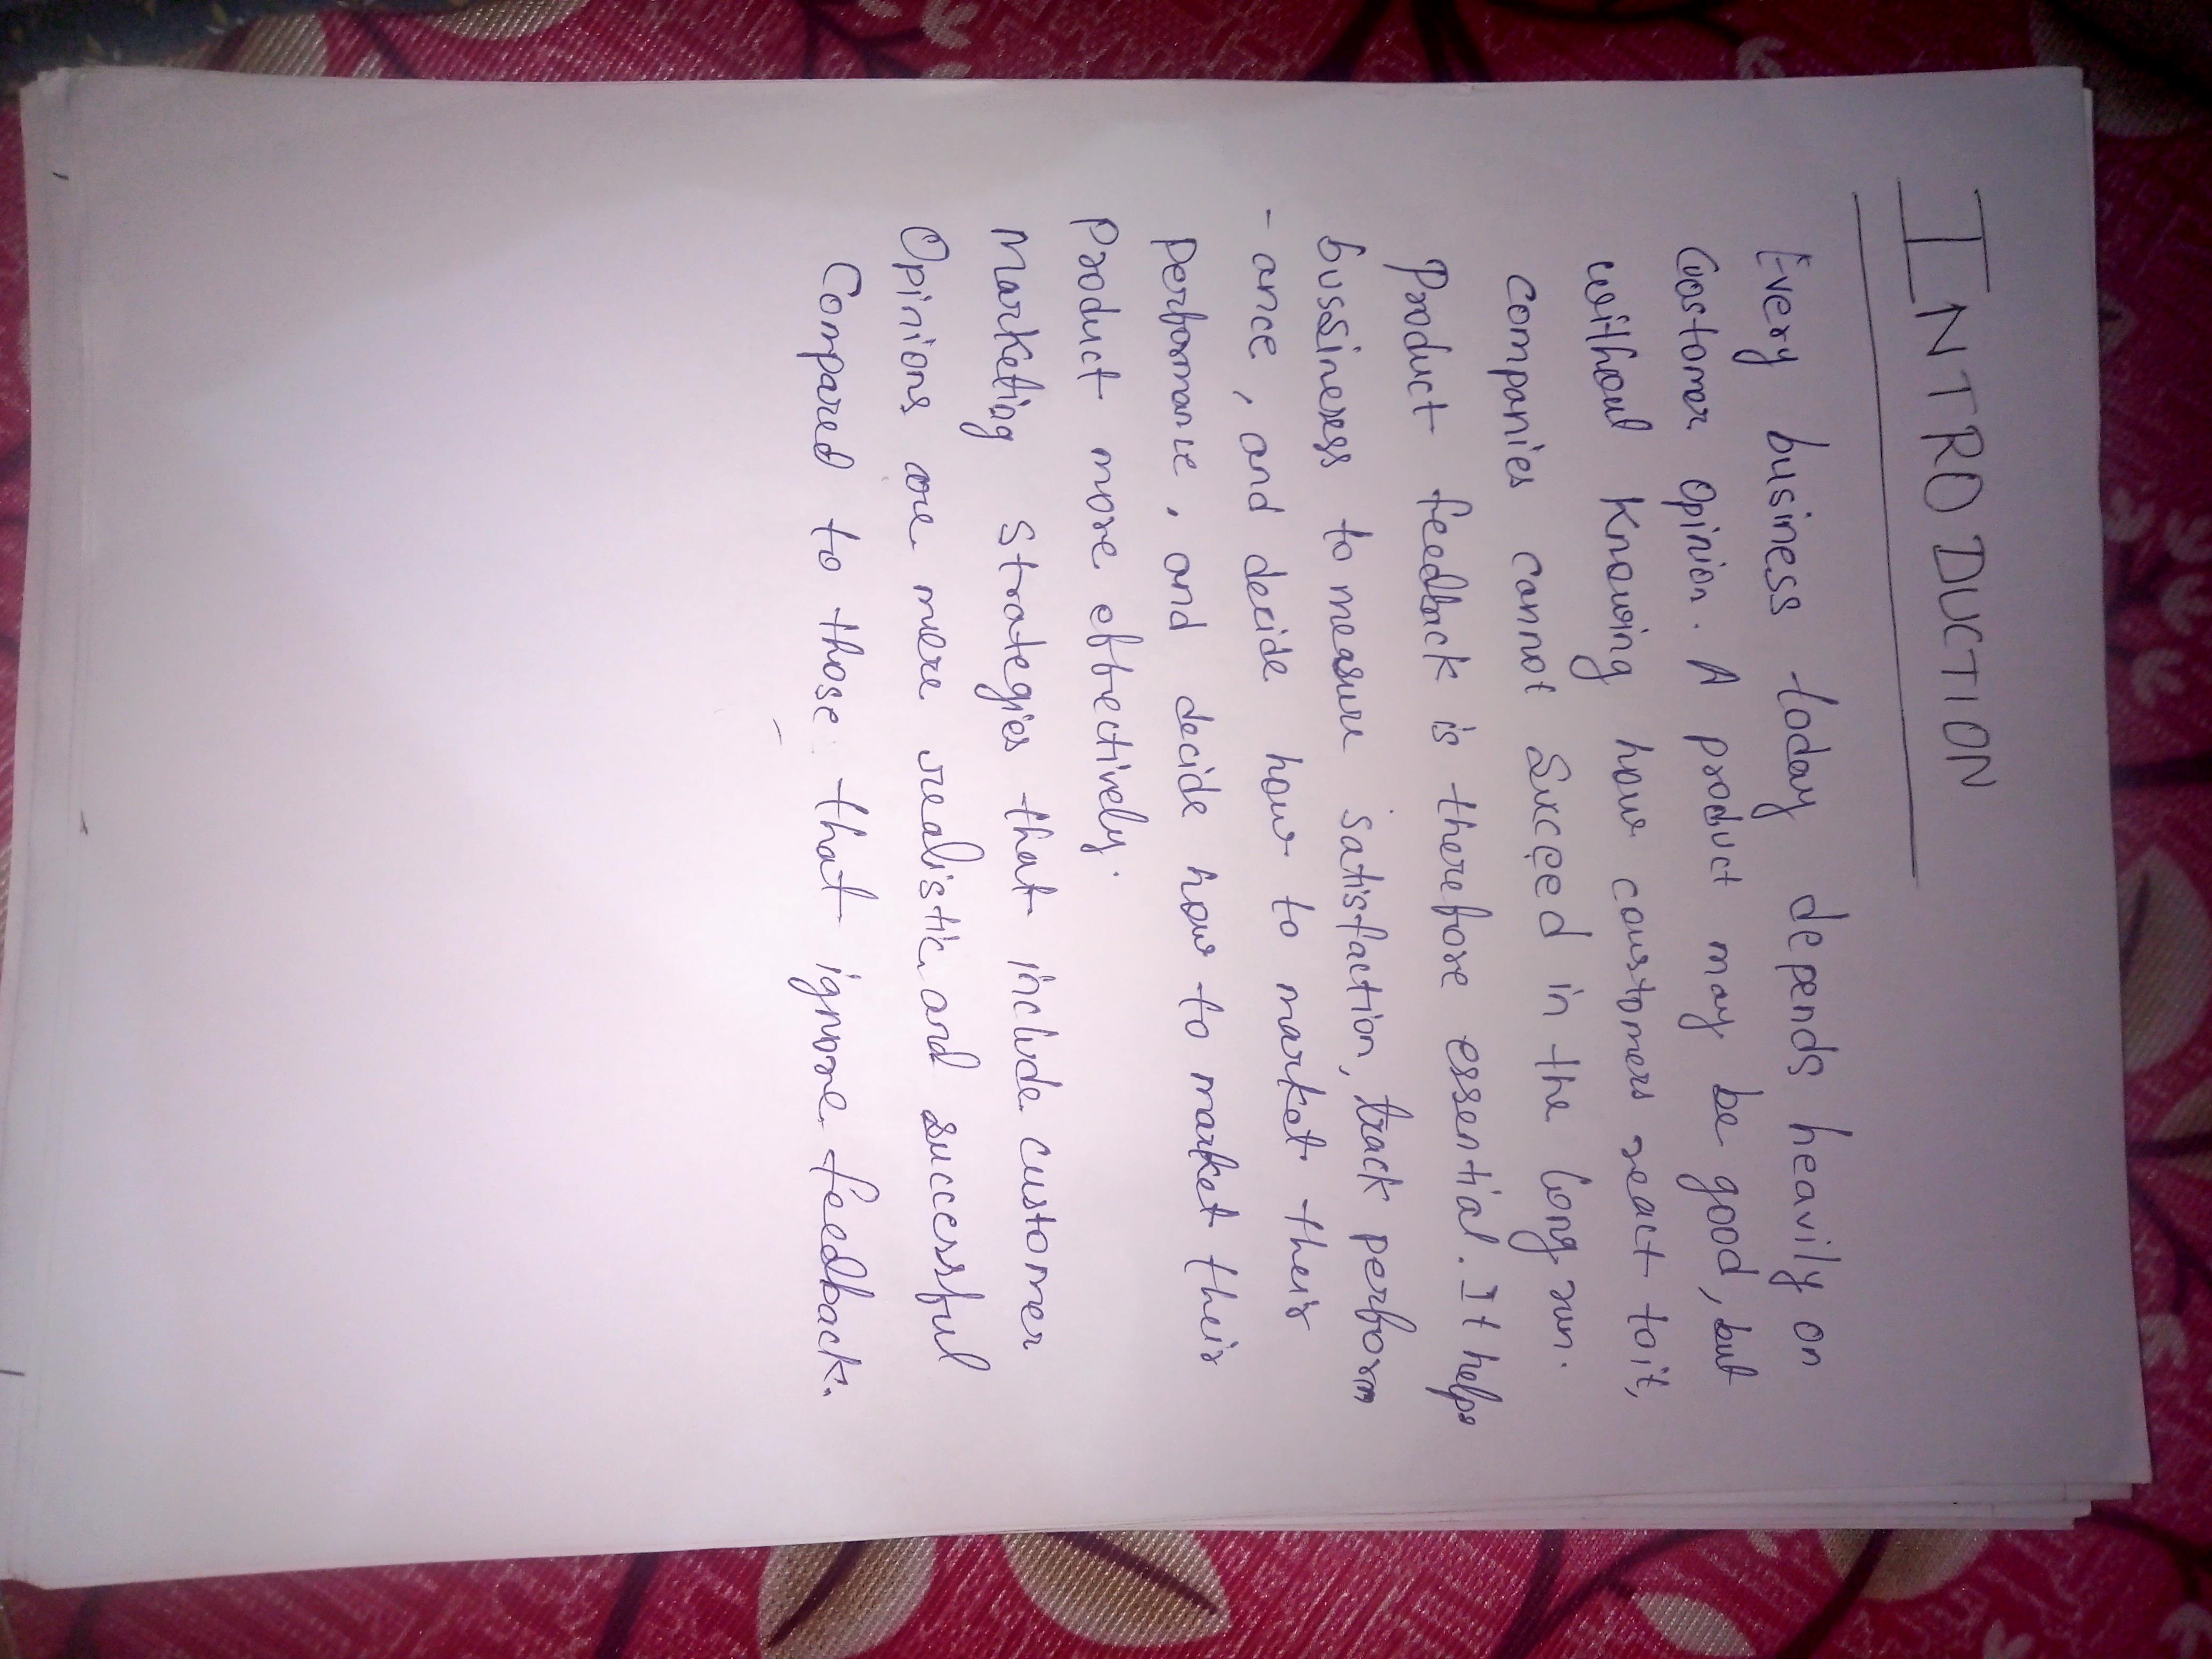 INTRODUCTION
Every business today depends heavily on
Customer opinion. A product may be good, but
without knowing how coustomers react to it,
companies cannot Succeed in the long run.
Product feedback is therefore essential. It helps
bussiness to measure satisfaction, track perform
-ance, and decide how to market their
performance, and decide how to market their
Product more effectively.
Marketing strategies that include customer
Opinions are more realistic and successful
Compared to those that ignore feedback.